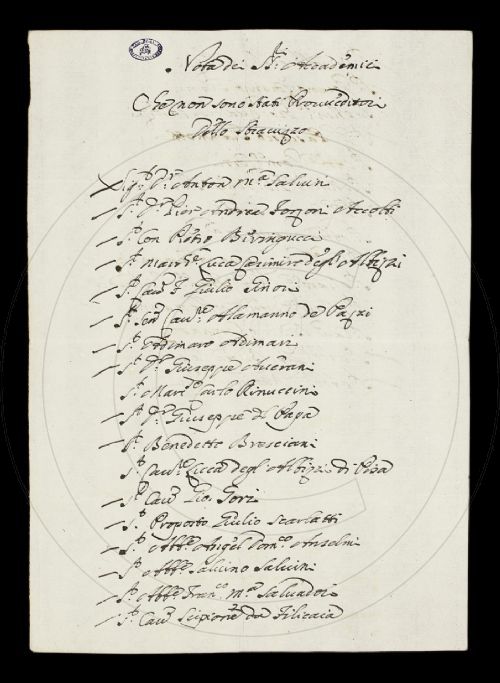 Nota dei SS.ri Accademici
Che non sono stati Proveditori
dello Stravizzo
Sig.r D.r Anton M.a Salvini
S.r D.r Pier Andrea Forzoni Accolti
S.r Con Biringucci
S.r March.e Luca Casimiro degl'Albizzi
S.r Cav.r Giulio Ginori
S.r Sen Cav.re Alamanno de Pazzi
S.r Ordinaro Adimari
S.r D.r Giuseppe Averani
S.r Mar.e Carlo Rinuccini
S.r D.r Giuseppe del Papa
S.r Benedetto Bresciani
S.r Cav.re Luca degl'Albizzi di Pisa
S.r Cav.r Gio. Gori
S.r Proposto Giulio Scarlatti
S.r Abb.e Angel Dom.co Anselmi
S.r Abb.e Salvino Salvini
S.r Abb.e Fran.co M.a Salvadori
S.r Cav.r Scipione da Filicaia